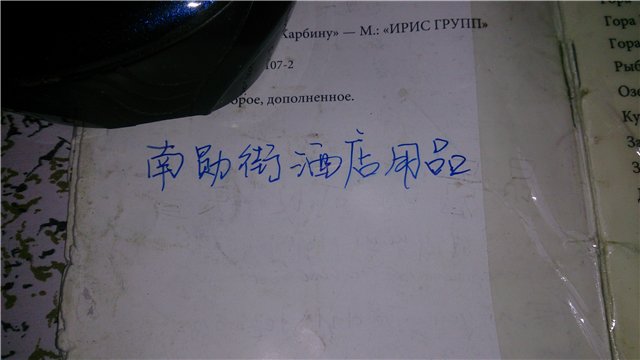 Карбину» — М.: «ИРИС ГРУПП»
107-2
орое, дополненное.
南勋街酒店用品
Гора
Гора
Рыб
Озе
Ку
За
З